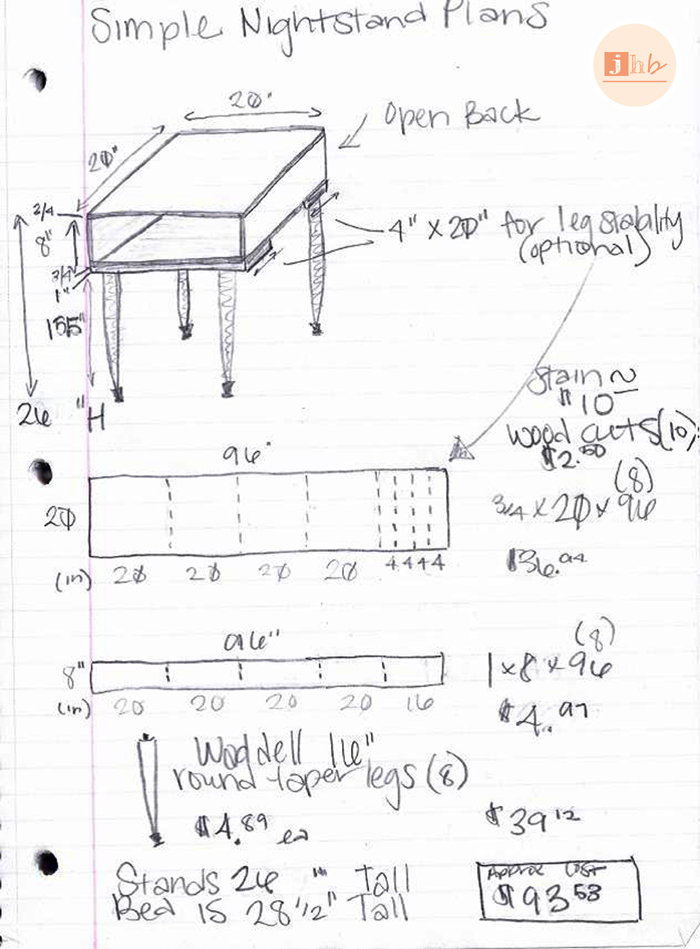 Simple Nightstand Plans
jhb
20"
Open Back
20"
3/4
8"
4" x 20" for leg stability
(optional)
3/4
1"
15.5"
26 "H
Stain ~
$10
Wood cuts (10):
$2.50
96"
(8)
20
3/4 x 20 x 96
$36.94
(in) 20 20 20 20 4 4 4 4
96"
(8)
8"
1 x 8 x 96
(in) 20 20 20 20 16
$4.97
Waddell 16"
round taper legs (8)
$4.89 ea
$39 12
Stands 26 " Tall
Bed is 28 1/2" Tall
Approx Cost
$93 53